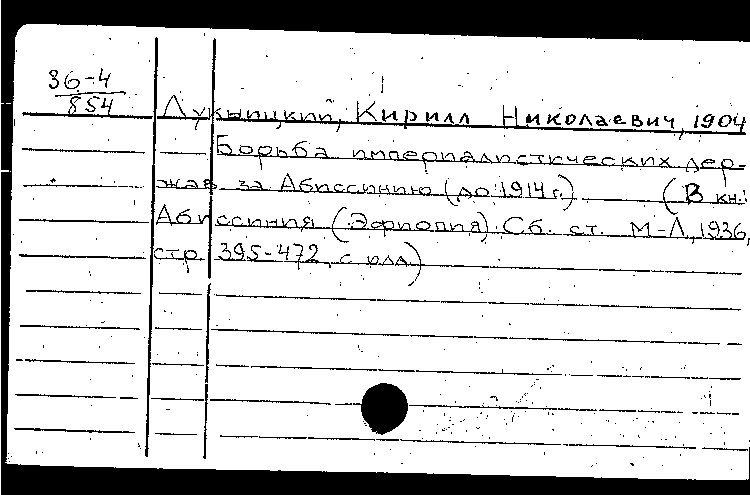 36-4
854
Лукницкий, Кирилл Николаевич, 1904
Борьба империалистических дер-
жав за Абиссинию (до 1914 г.) (В кн.:
Абиссиния (Эфиопия). Сб. ст. М-Л, 1936,
стр. 395-472, с илл)